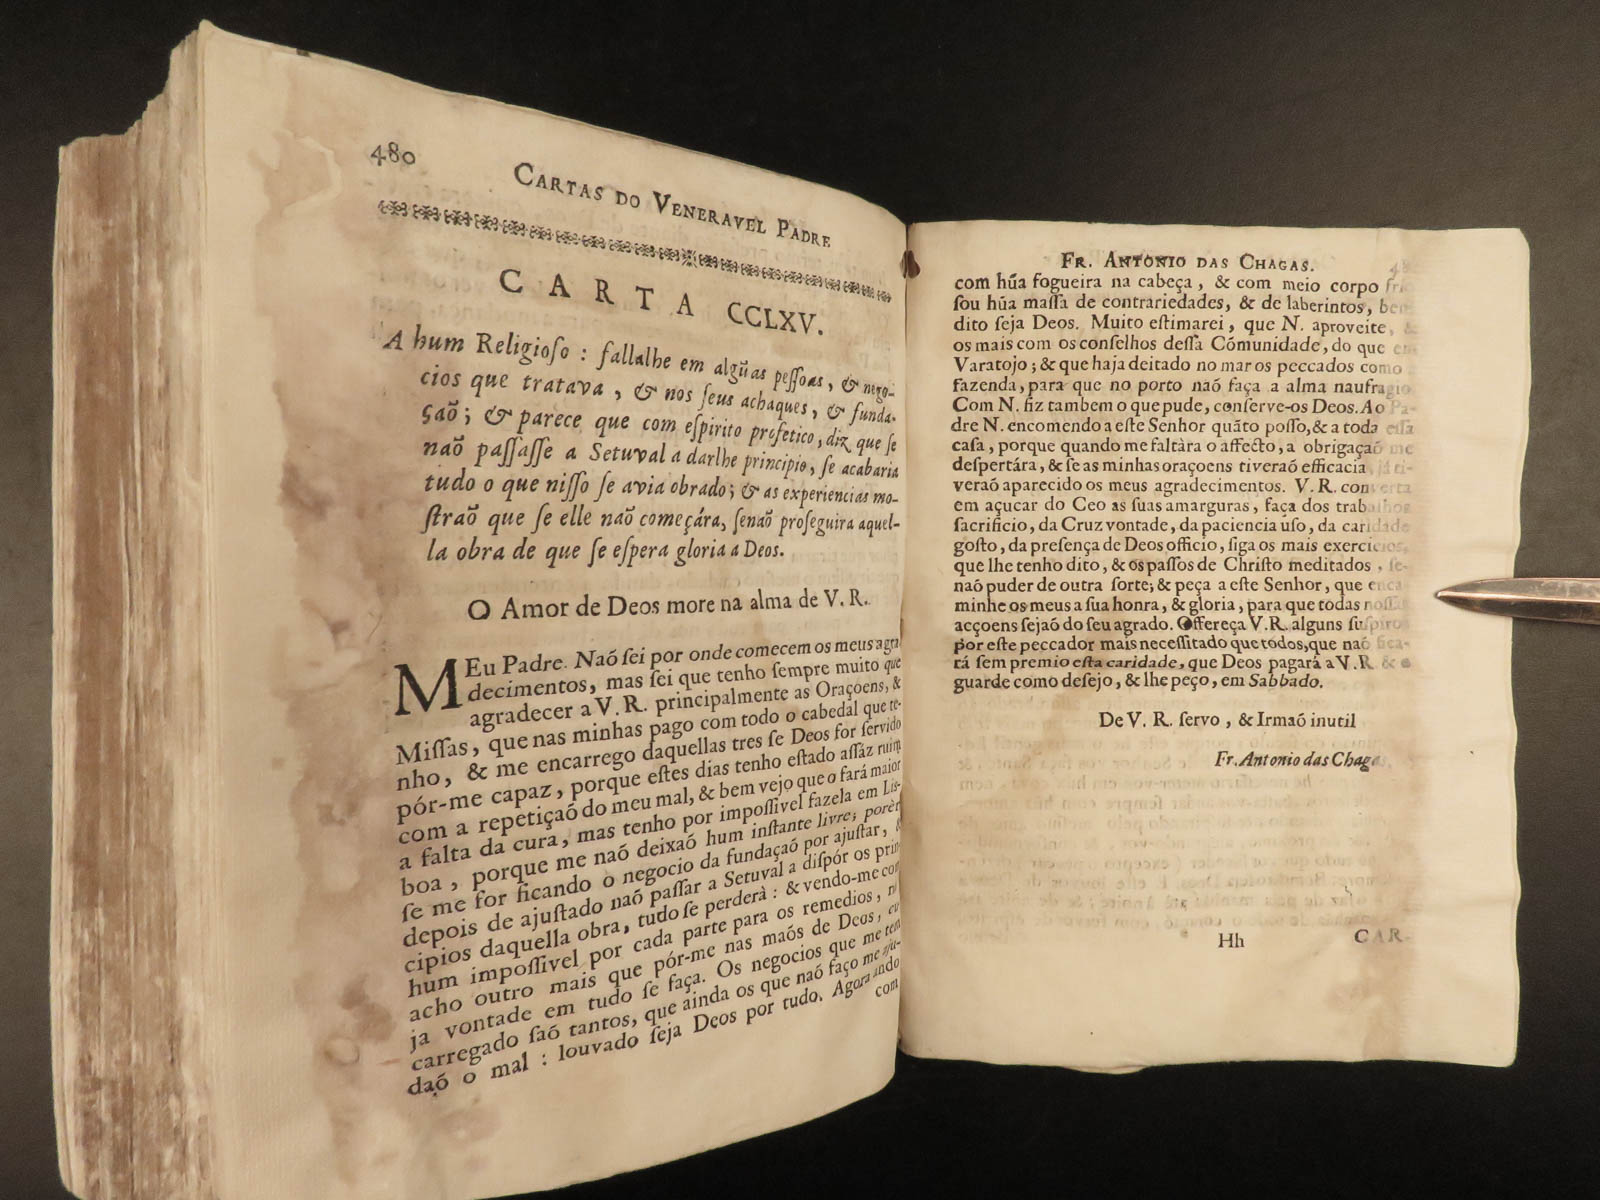 480
CARTAS DO VENERAVEL PADRE
CARTA CCLXV.
A hum Religioſo : fallalhe em algũas peſſoas, & nego-
cios que tratava, & nos ſeus achaques, & funda-
çaõ; & parece que com eſpirito profetico, diz que ſe
naõ paſſaſſe a Setuval a darlhe principio, ſe acabaria
tudo o que niſſo ſe avia obrado; & as experiencias mo-
ſtraõ que ſe elle naõ começára, ſenaõ proſeguira aquel-
la obra de que ſe eſpera gloria a Deos.
O Amor de Deos more na alma de V. R.
MEu Padre. Naõ ſei por onde comecem os meus agra
decimentos, mas ſei que tenho ſempre muito que
agradecer a V. R. principalmente as Oraçoens, &
Miſſas, que nas minhas pago com todo o cabedal que te-
nho, & me encarrego daquellas tres ſe Deos for ſervido
pór-me capaz, porque eſtes dias tenho eſtado aſſáz ruim
com a repetiçaõ do meu mal, & bem vejo que o fará maior
a falta da cura, mas tenho por impoſſivel fazela em Lis-
boa, porque me naõ deixaõ hum inſtante livre; porèr
ſe me for ficando o negocio da fundaçaõ por ajuſtar, &
depois de ajuſtado naõ paſſar a Setuval a diſpór os prin
cipios daquella obra, tudo ſe perderà : & vendo-me con
hum impoſſivel por cada parte para os remedios, n
acho outro mais que pór-me nas maõs de Deos, cu
ja vontade em tudo ſe faça. Os negocios que me tem
carregado ſaõ tantos, que ainda os que naõ faço me aju-
daõ o mal : louvado ſeja Deos por tudo. Agora ando
com
FR. ANTONIO DAS CHAGAS.
com hũa fogueira na cabeça, & com meio corpo fri
ſou hũa maſſa de contrariedades, & de laberintos, ben
dito ſeja Deos. Muito eſtimarei, que N. aproveite, &
os mais com os conſelhos deſſa Cómunidade, do que em
Varatojo; & que haja deitado no mar os peccados como
fazenda, para que no porto naõ faça a alma naufragio
Com N. fiz tambem o que pude, conſerve-os Deos. Ao Pa-
dre N. encomendo a eſte Senhor quãto poſſo, & a toda eſſa
caſa, porque quando me faltàra o affecto, a obrigaçaõ me
deſpertára, & ſe as minhas oraçoens tiveraõ efficacia, já ti-
veraõ aparecido os meus agradecimentos. V. R. converta
em açucar do Ceo as ſuas amarguras, faça dos trabalhos
ſacrificio, da Cruz vontade, da paciencia uſo, da caridade
goſto, da preſença de Deos officio, ſiga os mais exercicios,
que lhe tenho dito, & os paſſos de Chriſto meditados, ſe-
naõ puder de outra ſorte; & peça a eſte Senhor, que enca
minhe os meus a ſua honra, & gloria, para que todas noſſas
acçoens ſejaõ do ſeu agrado. Offereça V. R. alguns ſuſpiros
por eſte peccador mais neceſſitado que todos, que naõ fica-
rá ſem premio eſta caridade, que Deos pagará a V. R. & o
guarde como deſejo, & lhe peço, em Sabbado.
De V. R. ſervo, & Irmaõ inutil
Fr. Antonio das Chagas
Hh
CAR-